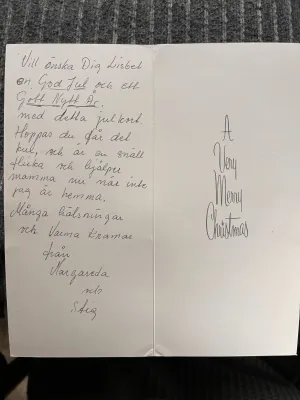 Vill önska Dig Lisbet
en God Jul och ett
Gott Nytt År.
med detta julkort.
Hoppas du får det
kul, och är en snäll
flicka och hjälper
mamma nu när inte
jag är hemma.
Många hälsningar
och Varma Kramar
från
Margareda
och
Stig
A
Very
Merry
Christmas